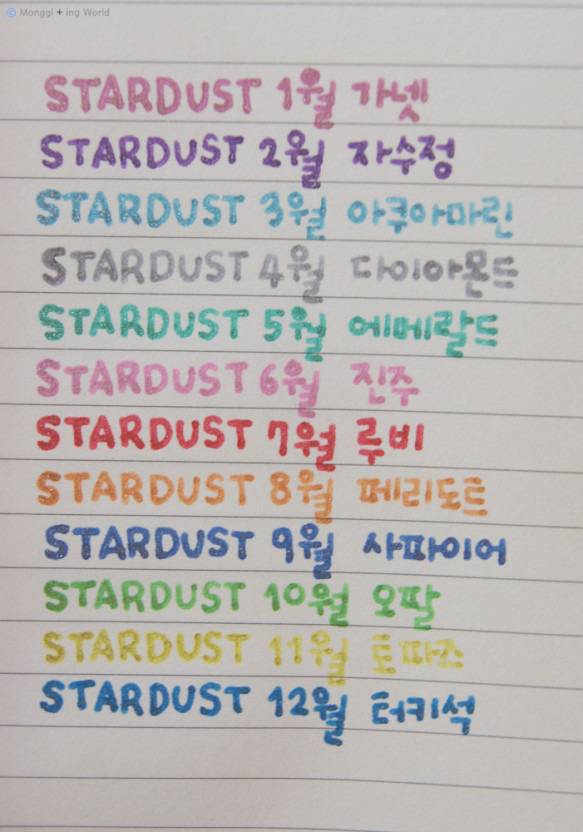 © Monggi + ing World
STARDUST 1월 가넷
STARDUST 2월 자수정
STARDUST 3월 아쿠아마린
STARDUST 4월 다이아몬드
STARDUST 5월 에메랄드
STARDUST 6월 진주
STARDUST 7월 루비
STARDUST 8월 페리도트
STARDUST 9월 사파이어
STARDUST 10월 오팔
STARDUST 11월 토파즈
STARDUST 12월 터키석